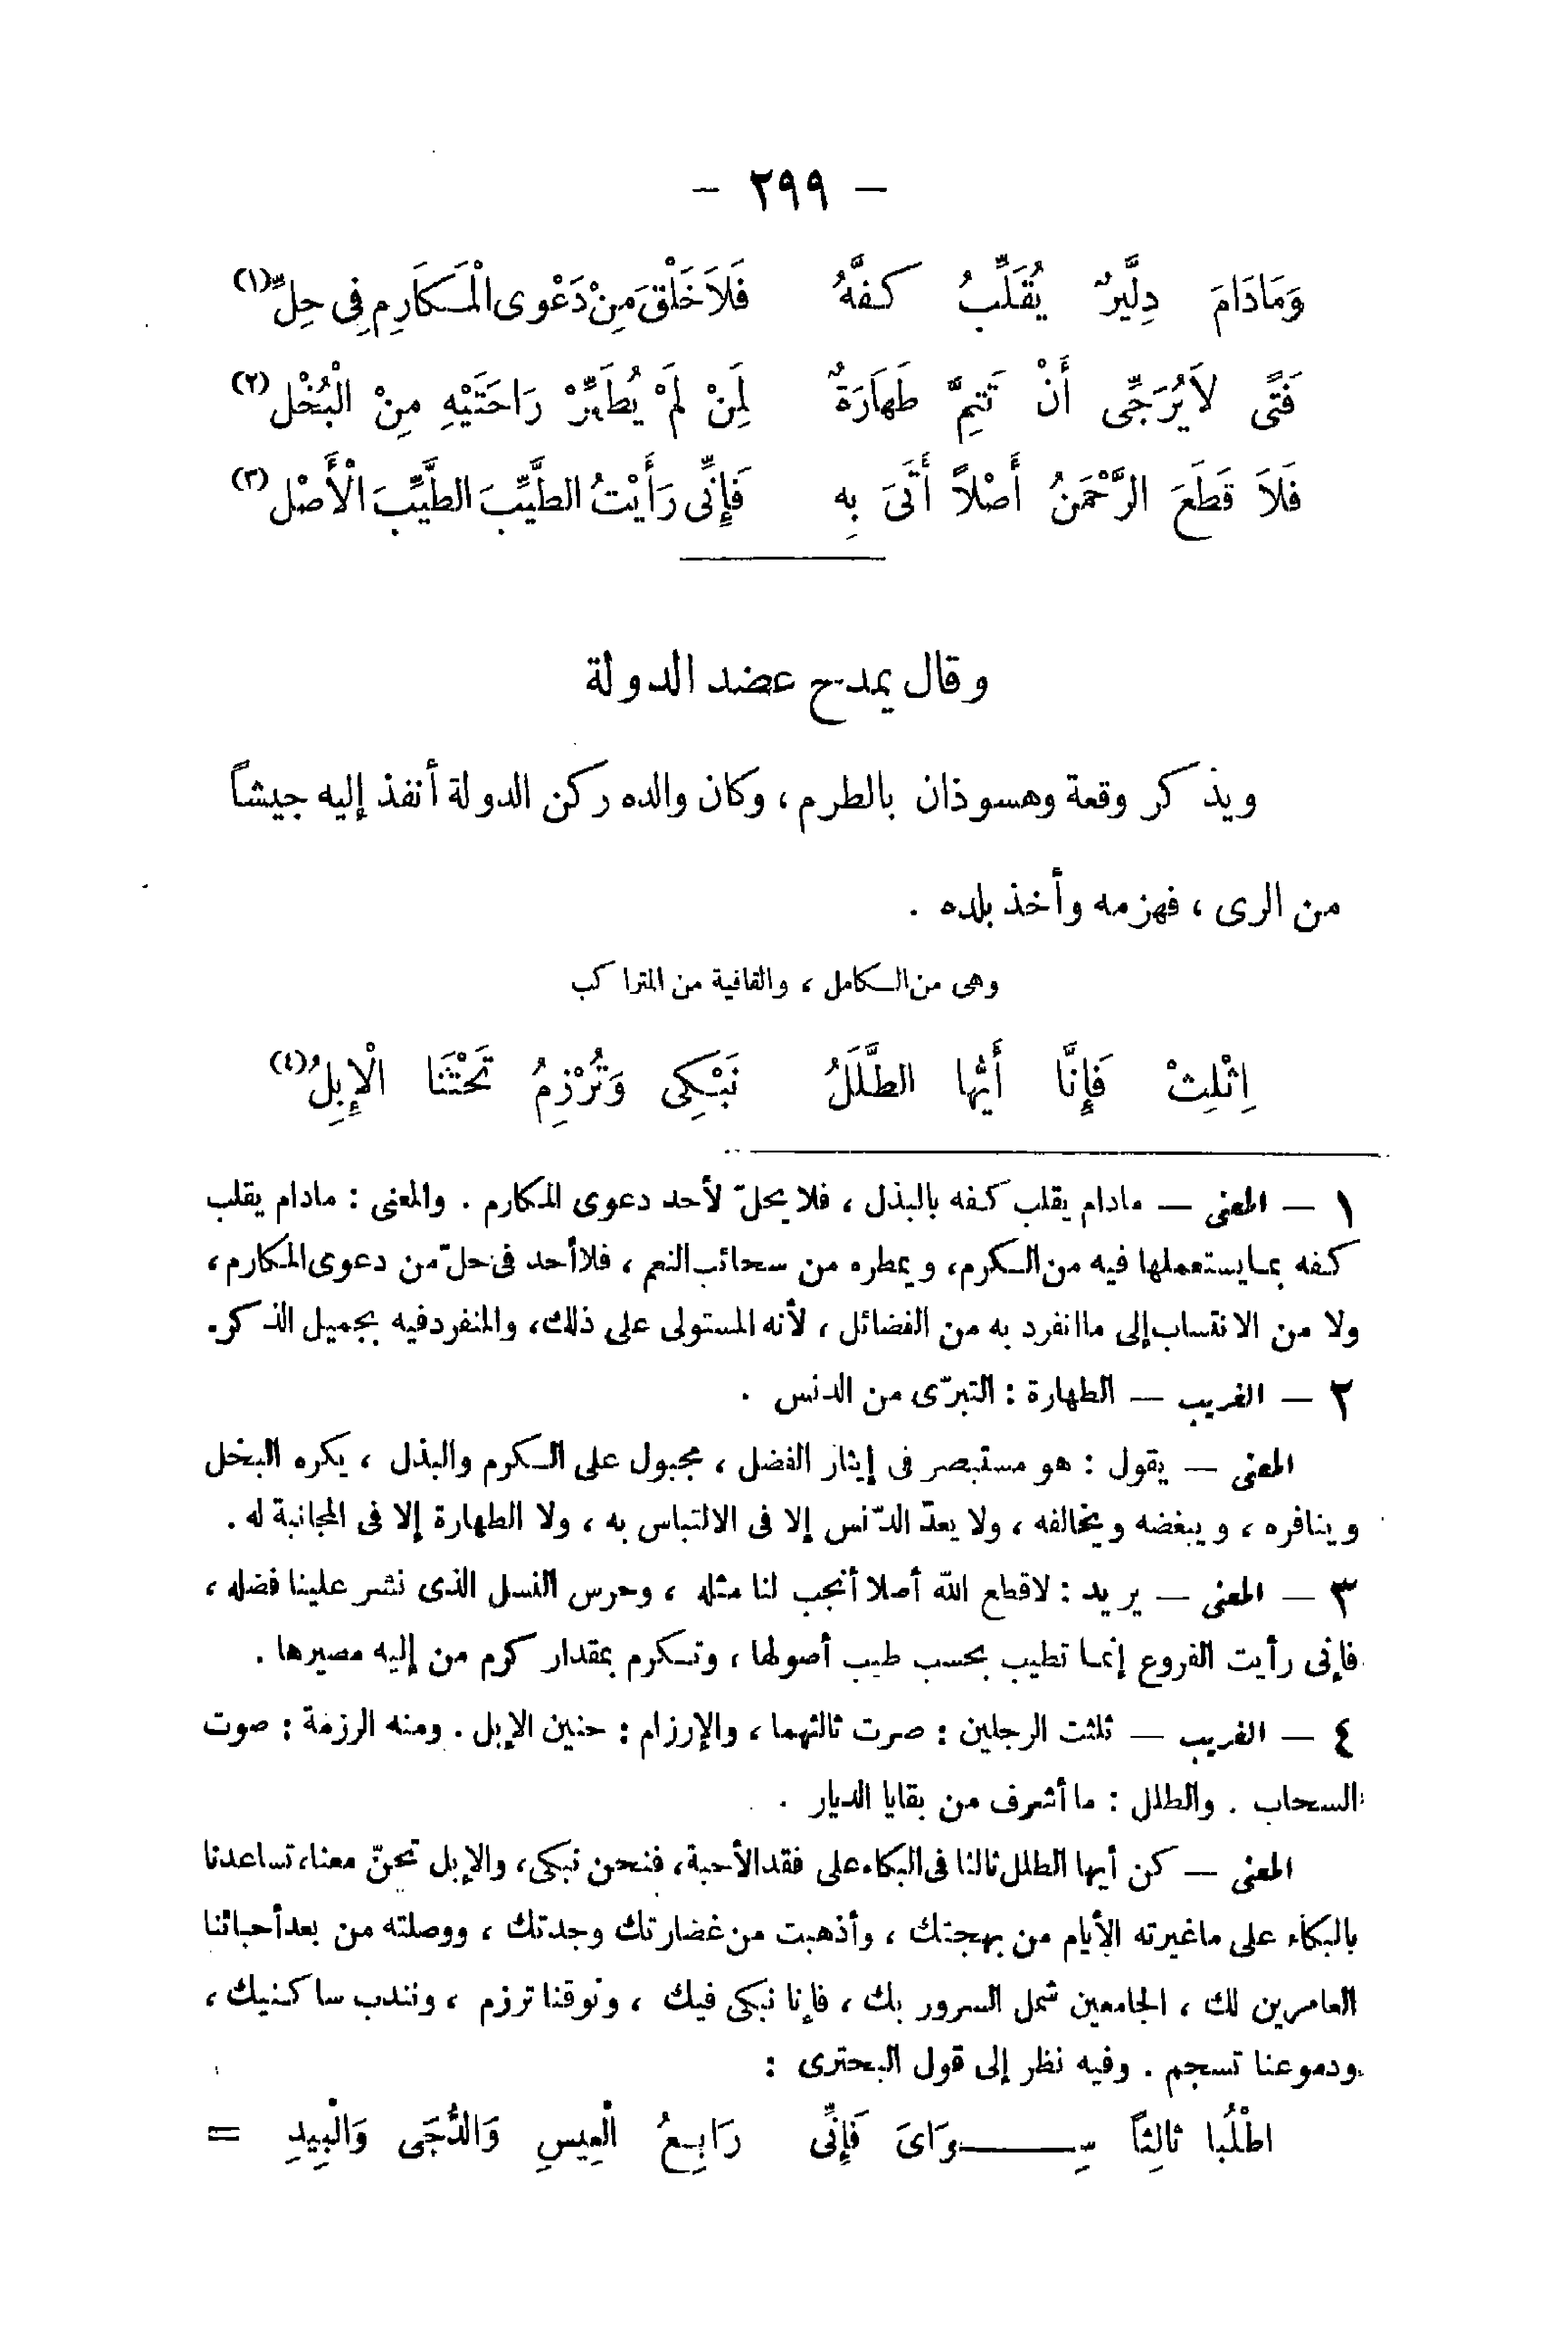 — ٢٩٩ —
وَمَادَامَ دِلَّيرٌ يُقَلِّبُ كَفَّهُ فَلاَ خَلْقَ مِنْ دَعْوى الْمَكَارِمِ فِى حِلِّ(١)
فَتًى لاَ يُرَجِّى أَنْ تَتِمَّ طَهَارَةٌ لِمَنْ لَمْ يُطَهِّرْ رَاحَتَيْهِ مِنْ الْبُخْلِ(٢)
فَلاَ قَطَعَ الرَّحْمَنُ أَصْلاً أَتَى بِهِ فَإِنِّى رَأَيْتُ الطَّيِّبَ الطَّيِّبَ الْأَصْلِ(٣)
وقال يمدح عضد الدولة
ويذكر وقعة وهسوذان بالطرم ، وكان والده ركن الدولة أنفذ إليه جيشاً
من الرى ، فهزمه وأخذ بلده .
وهى من الكامل ، والقافية من المتراكب
اِثْلِثْ فَإِنَّا أَيُّها الطَّلَلُ نَبْكِى وَتُرْزِمُ تَحْتَنَا الْإِبِلُ(٤)
١ — المعنى — مادام يقلب كفه بالبذل ، فلا يحلّ لأحد دعوى المكارم . والمعنى : مادام يقلب
كفه بما يستعملها فيه من الكرم، ويمطره من سحائب النعم ، فلا أحد فى حلّ من دعوى المكارم ،
ولا من الانتساب إلى ما انفرد به من الفضائل ، لأنه المستولى على ذلك، والمنفرد فيه بجميل الذكر.
٢ — الغريب — الطهارة : التبرّى من الدنس .
المعنى — يقول : هو مستبصر فى إيثار الفضل ، مجبول على الكرم والبذل ، يكره البخل
وينافره ، ويبغضه ويخالفه ، ولا يعدّ الدّنس إلا فى الالتباس به ، ولا الطهارة إلا فى المجانبة له .
٣ — المعنى — يريد : لا قطع الله أصلا أنجب لنا مثله ، وحرس النسل الذى نشر علينا فضله ،
فإنى رأيت الفروع إنما تطيب بحسب طيب أصولها ، وتكرم بمقدار كرم من إليه مصيرها .
٤ — الغريب — ثلثت الرجلين : صرت ثالثهما ، والإرزام : حنين الإبل . ومنه الرزمة : صوت
السحاب . والطلل : ما أشرف من بقايا الديار .
المعنى — كن أيها الطلل ثالثا فى البكاء على فقد الأحبة، فنحن نبكى، والإبل تحنّ معنا، تساعدنا
بالبكاء على ما غيرته الأيام من بهجتك ، وأذهبت من غضارتك وجدتك ، ووصلته من بعد أحبائنا
العامرين لك ، الجامعين شمل السرور بك ، فإنا نبكى فيك ، ونوقنا ترزم ، ونندب ساكنيك ،
ودموعنا تسجم . وفيه نظر إلى قول البحترى :
اطْلُبا ثالِثاً سِــوَاىَ فَإِنِّى رَابِعُ الْعِيسِ وَالدُّجَى وَالْبِيدِ =